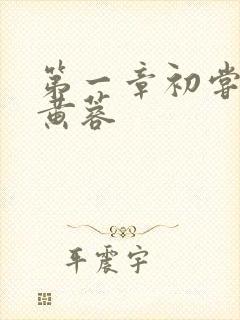 第一章初尝
黄蓉
平震宇